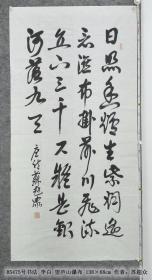 日照香爐生紫烟遥
看瀑布掛前川飛流
直下三千尺疑是銀
河落九天
85475号书法 李白 望庐山瀑布 138×68cm 作者：苏超众